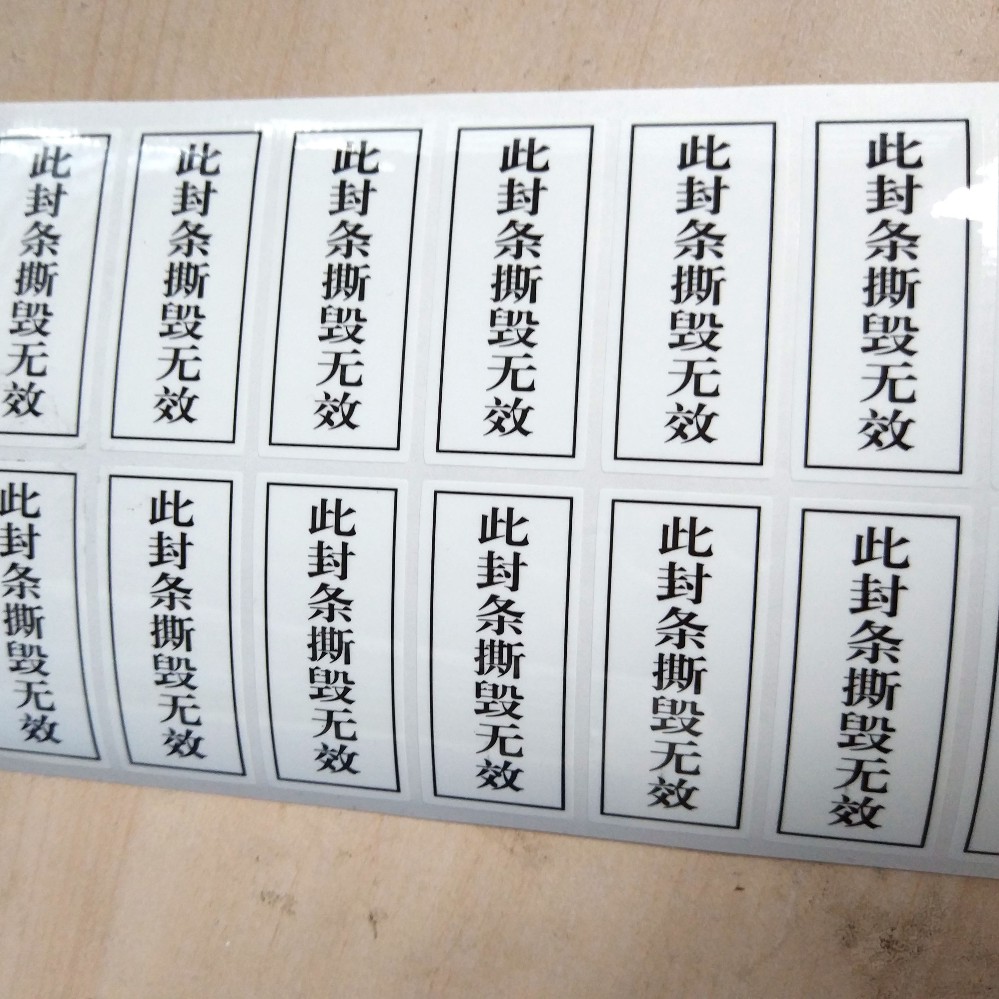 此封条撕毁无效
此封条撕毁无效
此封条撕毁无效
此封条撕毁无效
此封条撕毁无效
此封条撕毁无效
此封条撕毁无效
此封条撕毁无效
此封条撕毁无效
此封条撕毁无效
此封条撕毁无效
此封条撕毁无效